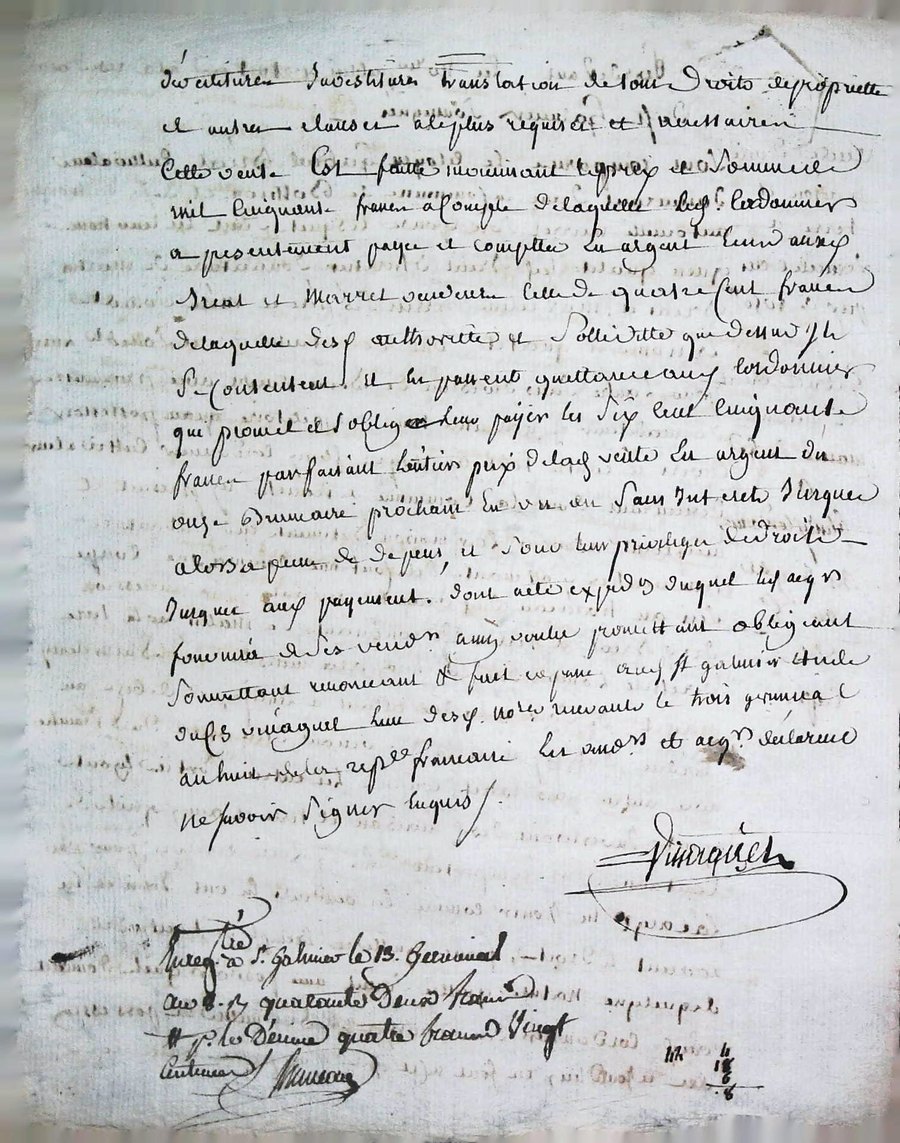 devestitures Investitures translation de tous Droits de propriette
et autres clauses a le plus requises et necessaires
Cette vente Est faitte moienant le prix et Somme de
mil Cinquante francs a Compte de laquelle led. Cordonnier
a presentement payé et compttée En argent
et Marret vendeurs Celle de quatre Cent francs
de laquelle authorittée et Sollicittée que dessus Ils
Se Contentent et En passent quittance aud. Cordonnier
qui promet et s'oblige leur payer les Six Cent Cinquante
francs parfaisant l'entier prix de lad. vente En argent du
onze Brumaire prochain En un an Sans Interets Jusques
alors a peine de depens, et Sous leur privilege de droits
Jusques aud. payement. dont acte expedié duquel les acqrs
de ses vendrs ainsi voulu promettant obligeant
Soumettant renonceant & fait et passé aud. St galmier Etude
du C. vinagues l'un des notres recevants le trois germinal
an huit de la repbe francaise Les vendrs et acqrs declarent
ne Savoir Signer Enquis
Enregtré à St. Galmier le 13. Germinal
an 8. R. quarante Deux francs
p. le Décime quatre francs Vingt
Centimes